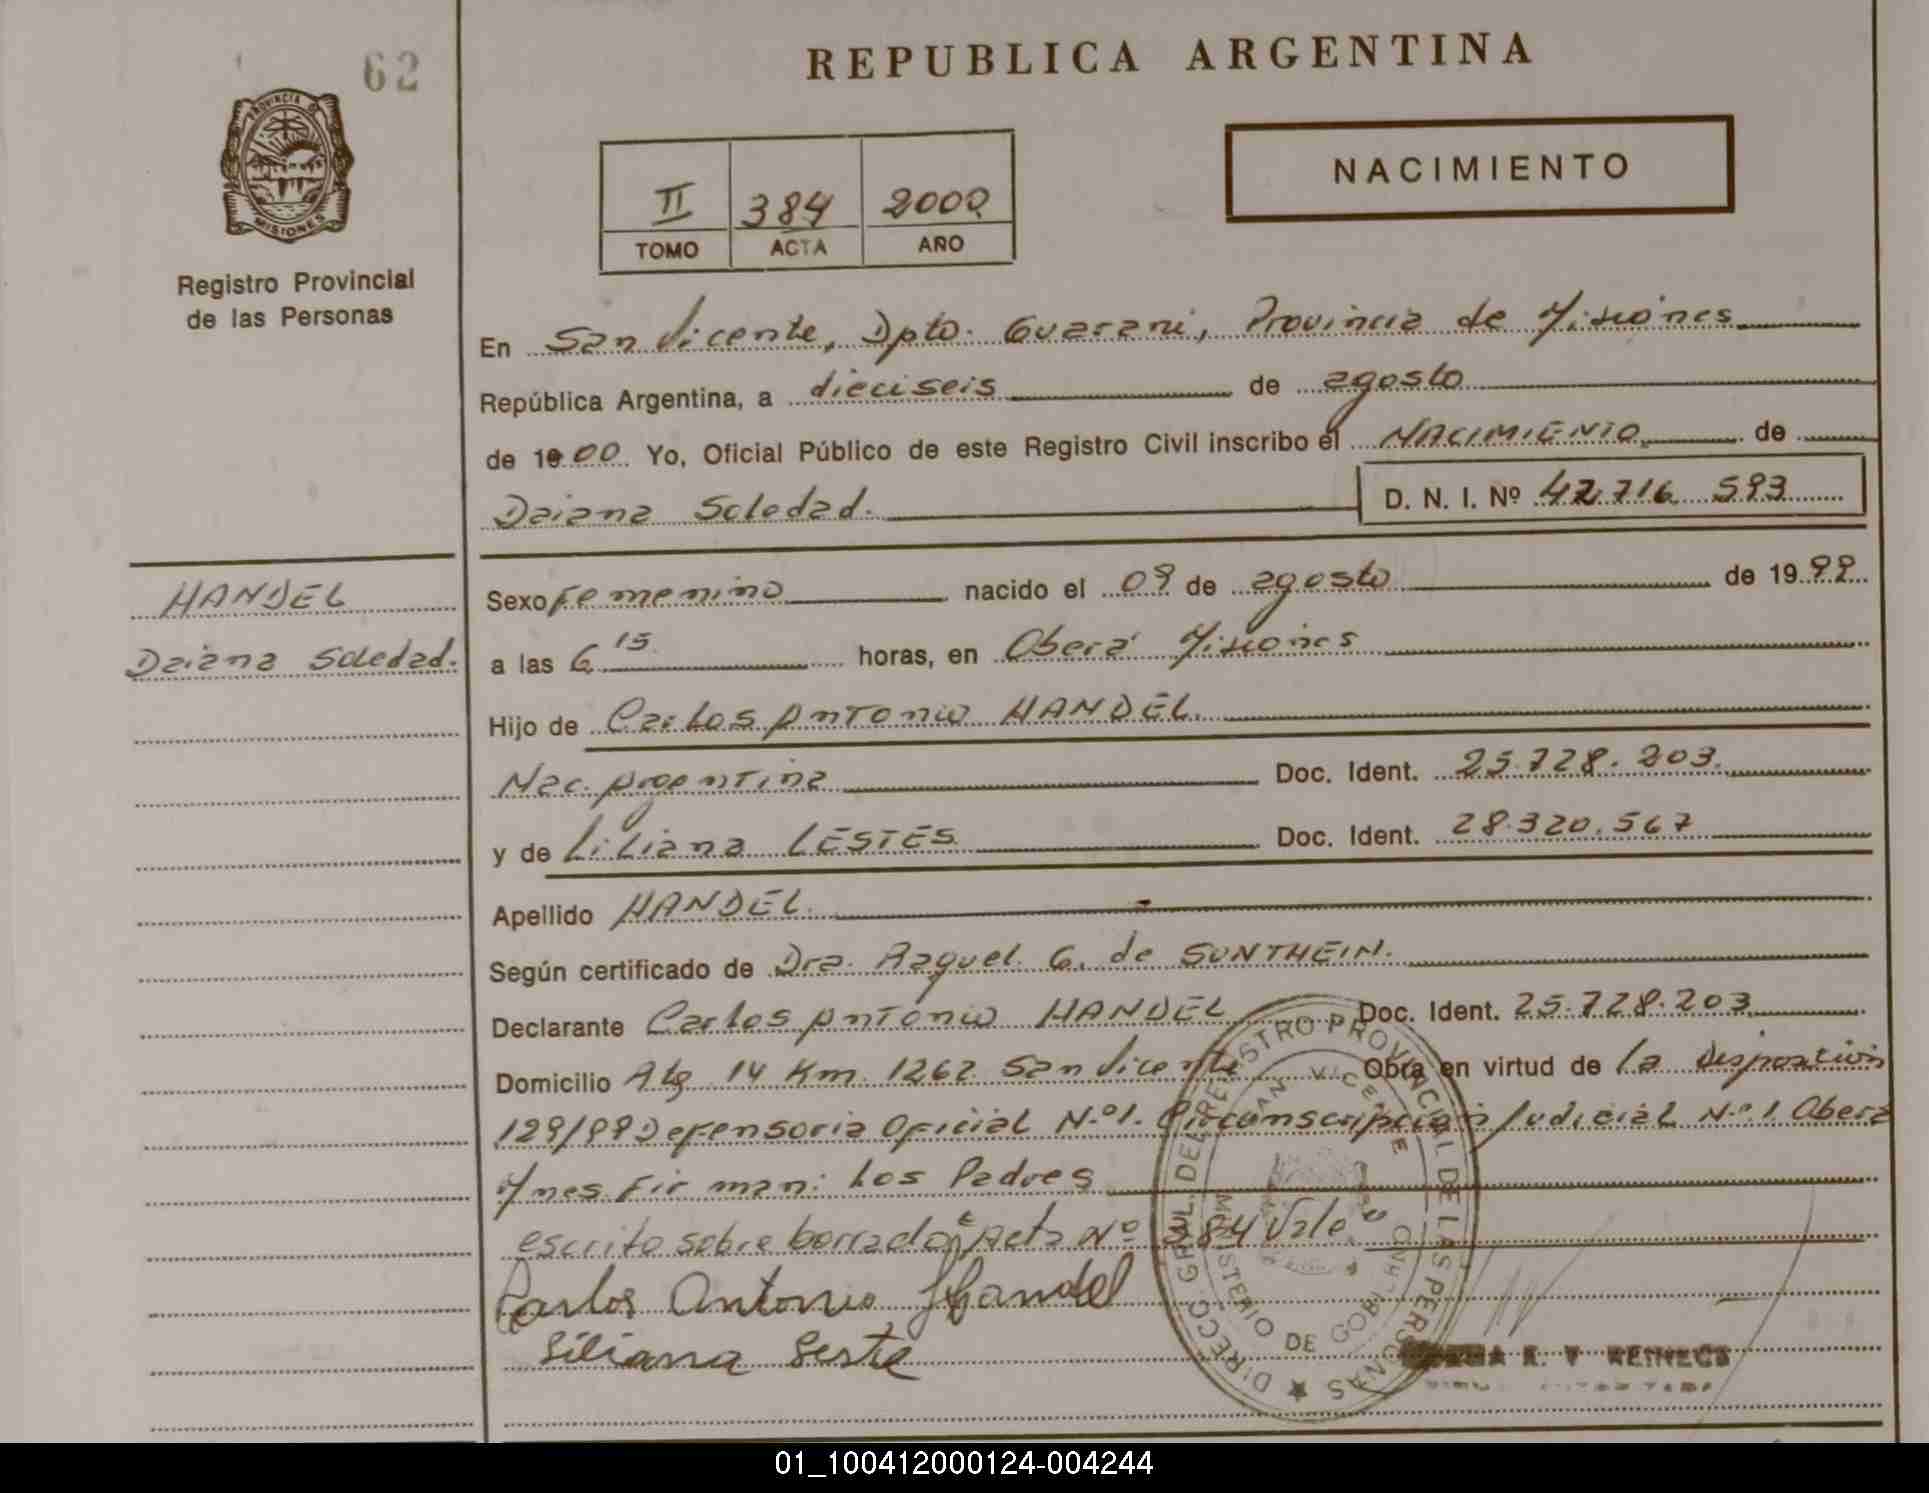 62
REPUBLICA ARGENTINA
PROVINCIA D
MISIONES
Registro Provincial
de las Personas
II 384 2000
TOMO ACTA AÑO
NACIMIENTO
En San Vicente, Dpto. Guarani, Provincia de Misiones
República Argentina, a dieciseis de agosto
de 1900 Yo, Oficial Público de este Registro Civil inscribo el NACIMIENTO de
Daiana Soledad. D. N. I. Nº 42.716 593
HANDEL
Daiana Soledad.
Sexo Femenino nacido el 09 de agosto de 1999
a las 6 15 horas, en Oberá Misiones
Hijo de Carlos Antonio HANDEL.
Nac. Argentina Doc. Ident. 25.728.203.
y de Liliana LESTES Doc. Ident. 28.320.567
Apellido HANDEL.
Según certificado de Dra. Raquel G. de SONTHEIN.
Declarante Carlos Antonio HANDEL Doc. Ident. 25.728.203
Domicilio Km 1262 San Vicente Obra en virtud de la Disposición
129/99 Defensoria Oficial N.º 1. Circunscripción Judicial N.º 1 Oberá
Mnes Firman: Los Padres
escrito sobre borrado Acta Nº 384 Vale
Carlos Antonio Handel
Liliana Leste
DIRECC. GRAL. DEL REGISTRO PROVINCIAL DE LAS PERSONAS
SAN VICENTE
MINISTERIO DE GOBI
REINECS
01_100412000124-004244